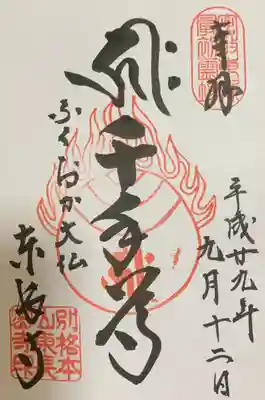 奉拝
平成廿九年
九月十二日
千手尊
ふくおか大仏
東長寺
別格本
山東長